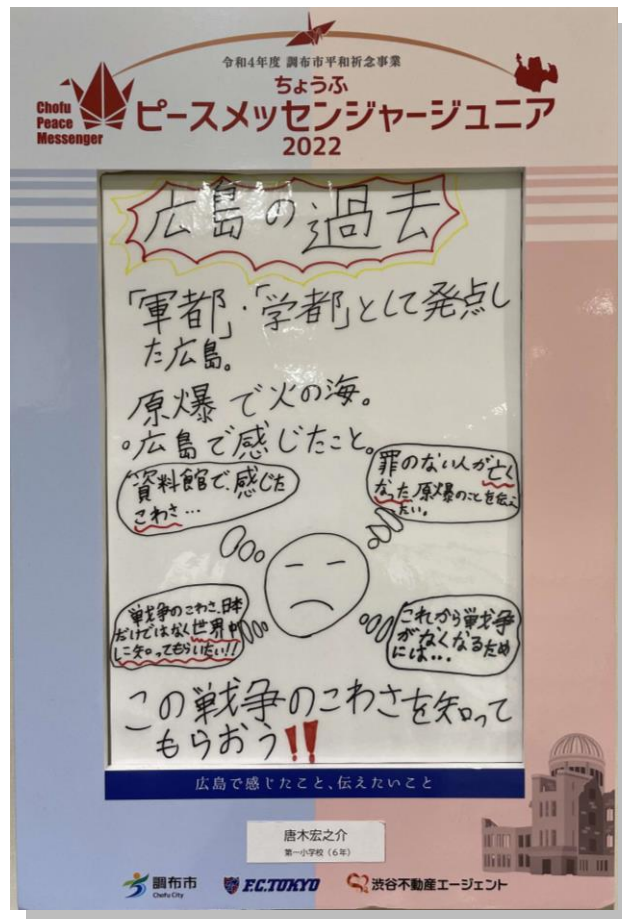 令和4年度 調布市平和祈念事業
ちょうふ
Chofu
Peace
Messenger
ピースメッセンジャージュニア
2022
広島の過去
「軍都」・「学都」として発点し
た広島。
原爆で火の海。
。広島で感じたこと。
資料館で、感じた
こわさ…
罪のない人が亡く
なった原爆のことを伝え
たい。
戦争のこわさ、日本
だけではなく世界中
に知ってもらいたい!!
これから戦争
がなくなるため
には…
この戦争のこわさを知って
もらおう!!
広島で感じたこと、伝えたいこと
唐木宏之介
第一小学校(6年)
調布市
Chofu City
F.C.TOKYO
渋谷不動産エージェント